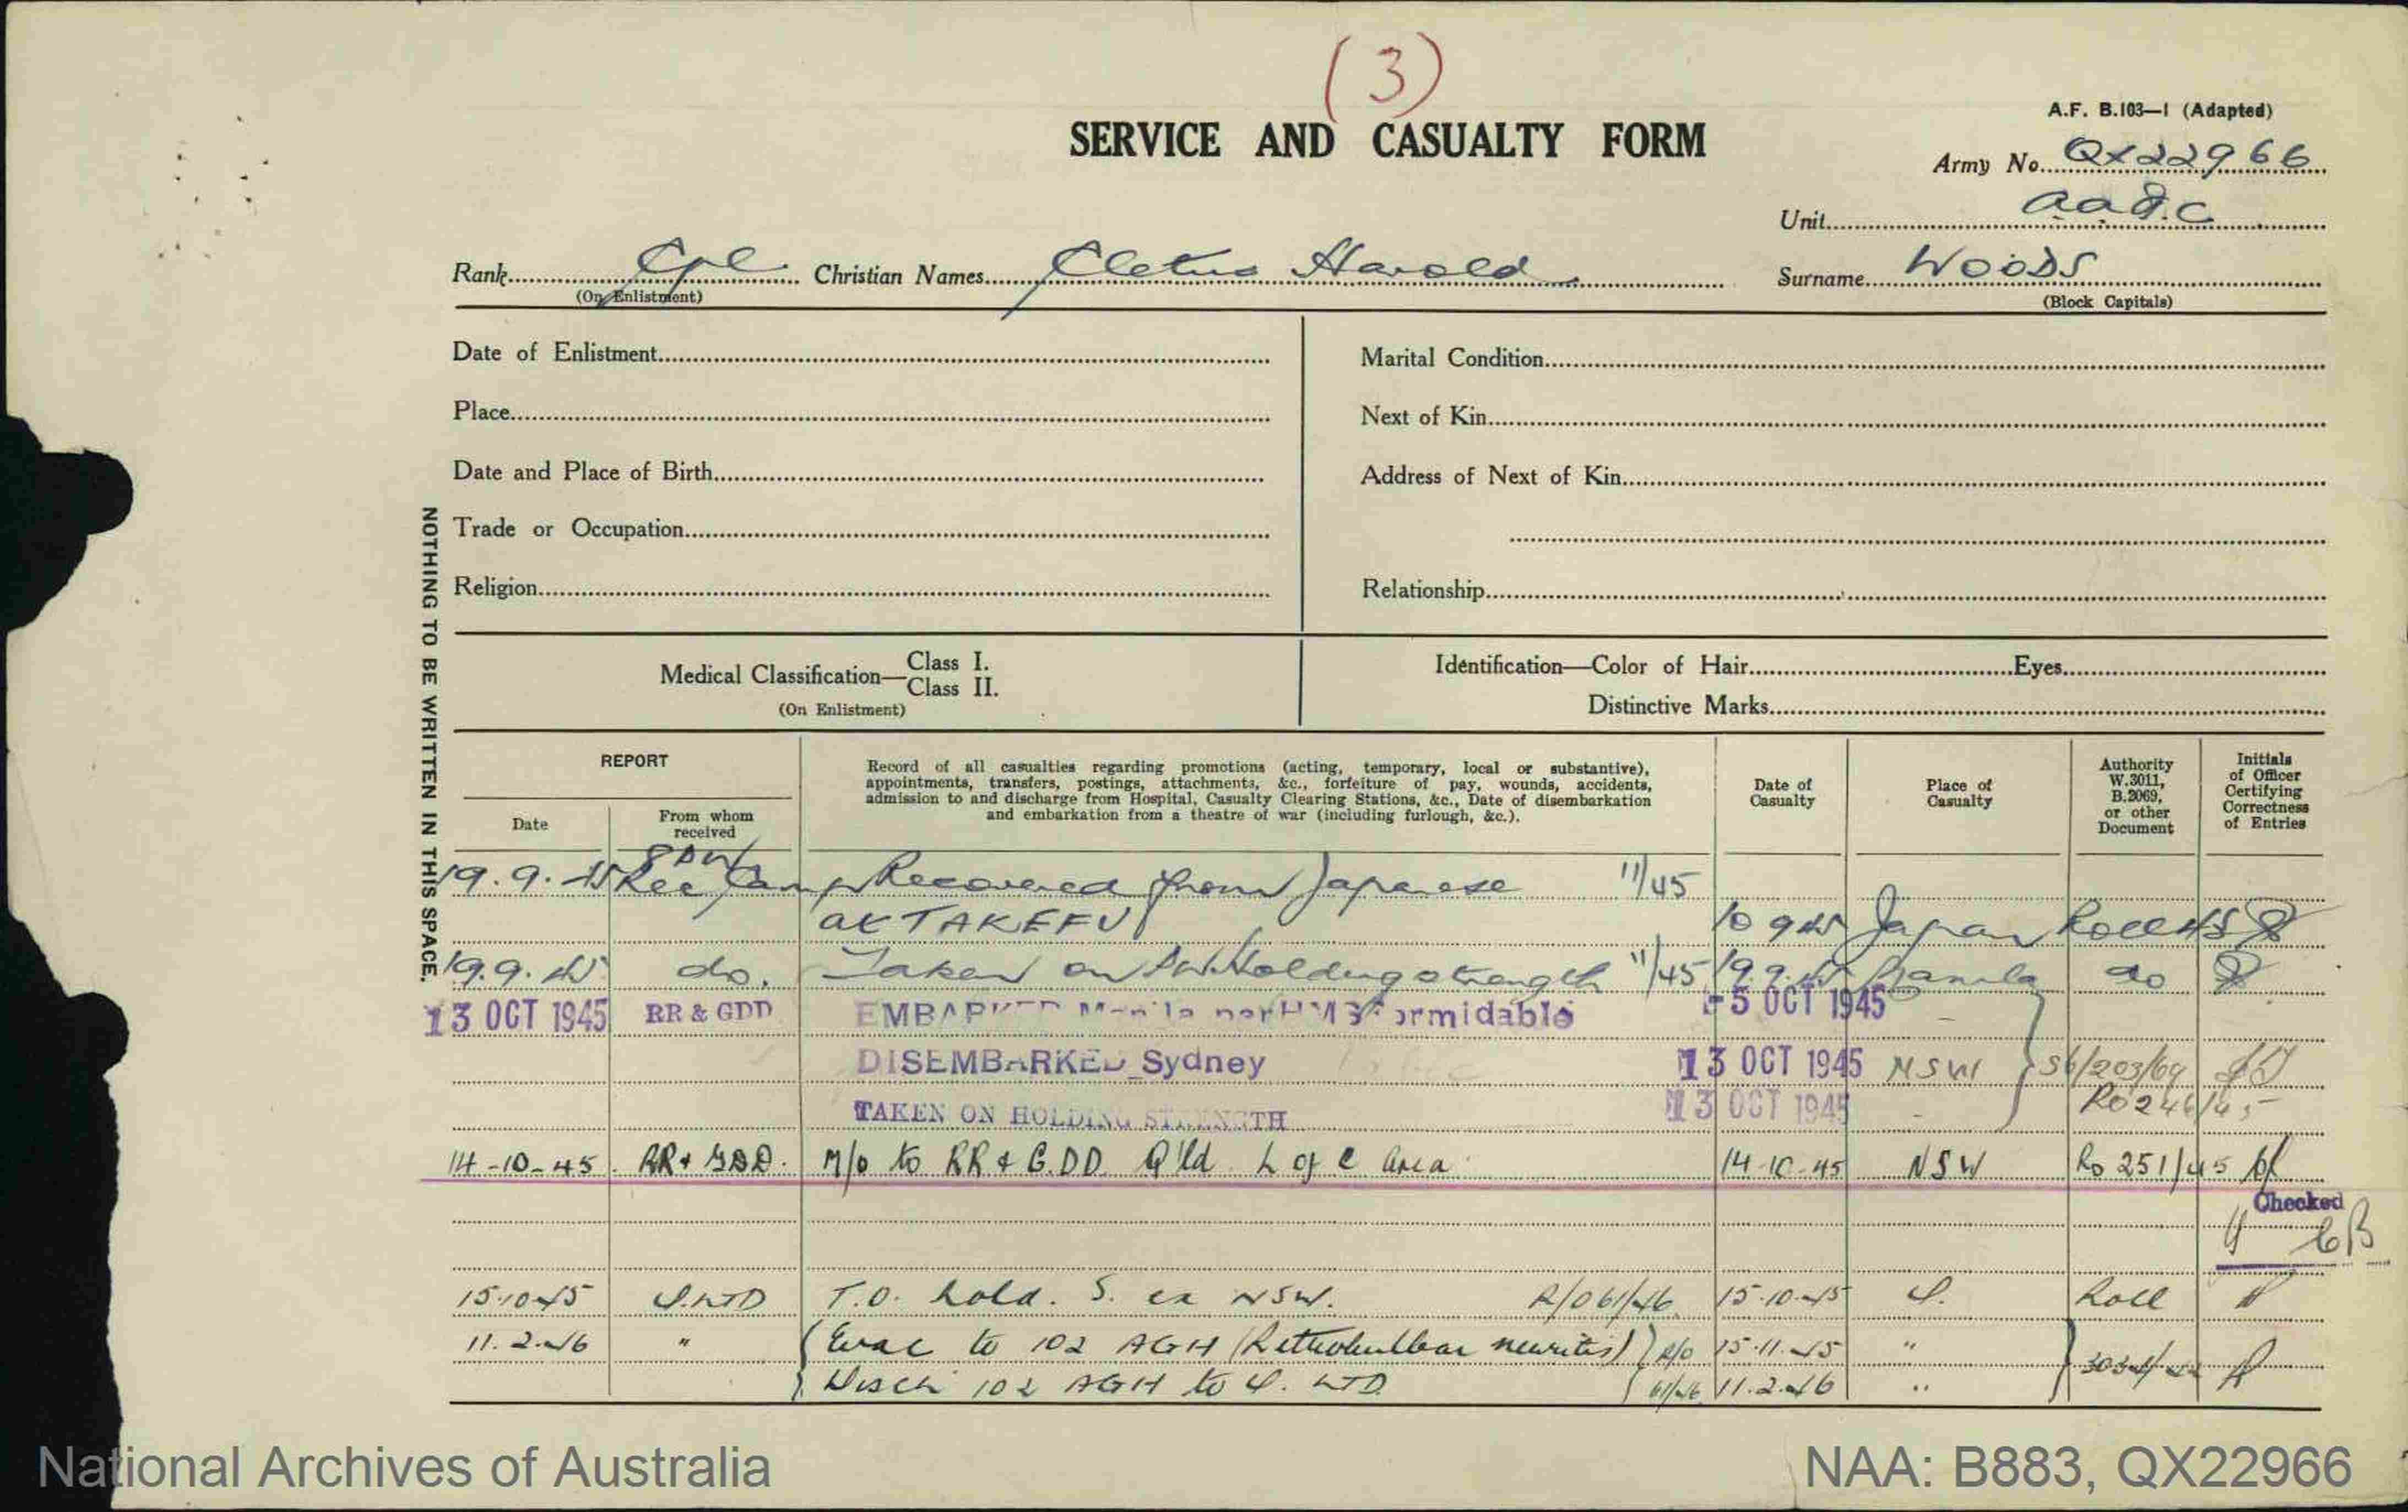 (3)
SERVICE AND CASUALTY FORM
A.F. B.103—1 (Adapted)
Army No. QX22966
Unit
Rank Cpl Christian Names Cletus Harold Surname WOODS
(On Enlistment) (Block Capitals)
Date of Enlistment
Place
Date and Place of Birth
Trade or Occupation
Religion
Marital Condition
Next of Kin
Address of Next of Kin
Relationship
Medical Classification— Class I.
Class II.
(On Enlistment)
Identification—Color of Hair Eyes
Distinctive Marks
NOTHING TO BE WRITTEN IN THIS SPACE.
REPORT
Date
From whom received
Record of all casualties regarding promotions (acting, temporary, local or substantive),
appointments, transfers, postings, attachments, &c., forfeiture of pay, wounds, accidents,
admission to and discharge from Hospital, Casualty Clearing Stations, &c., Date of disembarkation
and embarkation from a theatre of war (including furlough, &c.).
Date of Casualty
Place of Casualty
Authority W.3011, B.2069, or other Document
Initials of Officer Certifying Correctness of Entries
19.9.45 Rec Camp Recovered from Japanese 11/45
at TAKEFU 10 9 45 Japan Roll 45
19.9.45 do. Taken on holding strength 11/45 19.9.45 Manila do
13 OCT 1945 RR & GDD EMBARKED Manila per HMS Formidable -5 OCT 1945
DISEMBARKED Sydney 13 OCT 1945 NSW S6/203/69
TAKEN ON HOLDING STRENGTH 13 OCT 1945 RO 246/45
14-10-45 RR & GDD. M/o to RR & G.DD Q'ld L of C Area 14-10-45 NSW Ro 251/45
Checked
15.10.45 Q.LTD T.O. hold. S. ex NSW. R/O 61/46 15.10.45 Q. Roll
11.2.46 " (Evac to 102 AGH (Retrobulbar neuritis) R/O 15.11.45 "
Disch 102 AGH to Q. LTD 61/46 11.2.46 "
National Archives of Australia
NAA: B883, QX22966